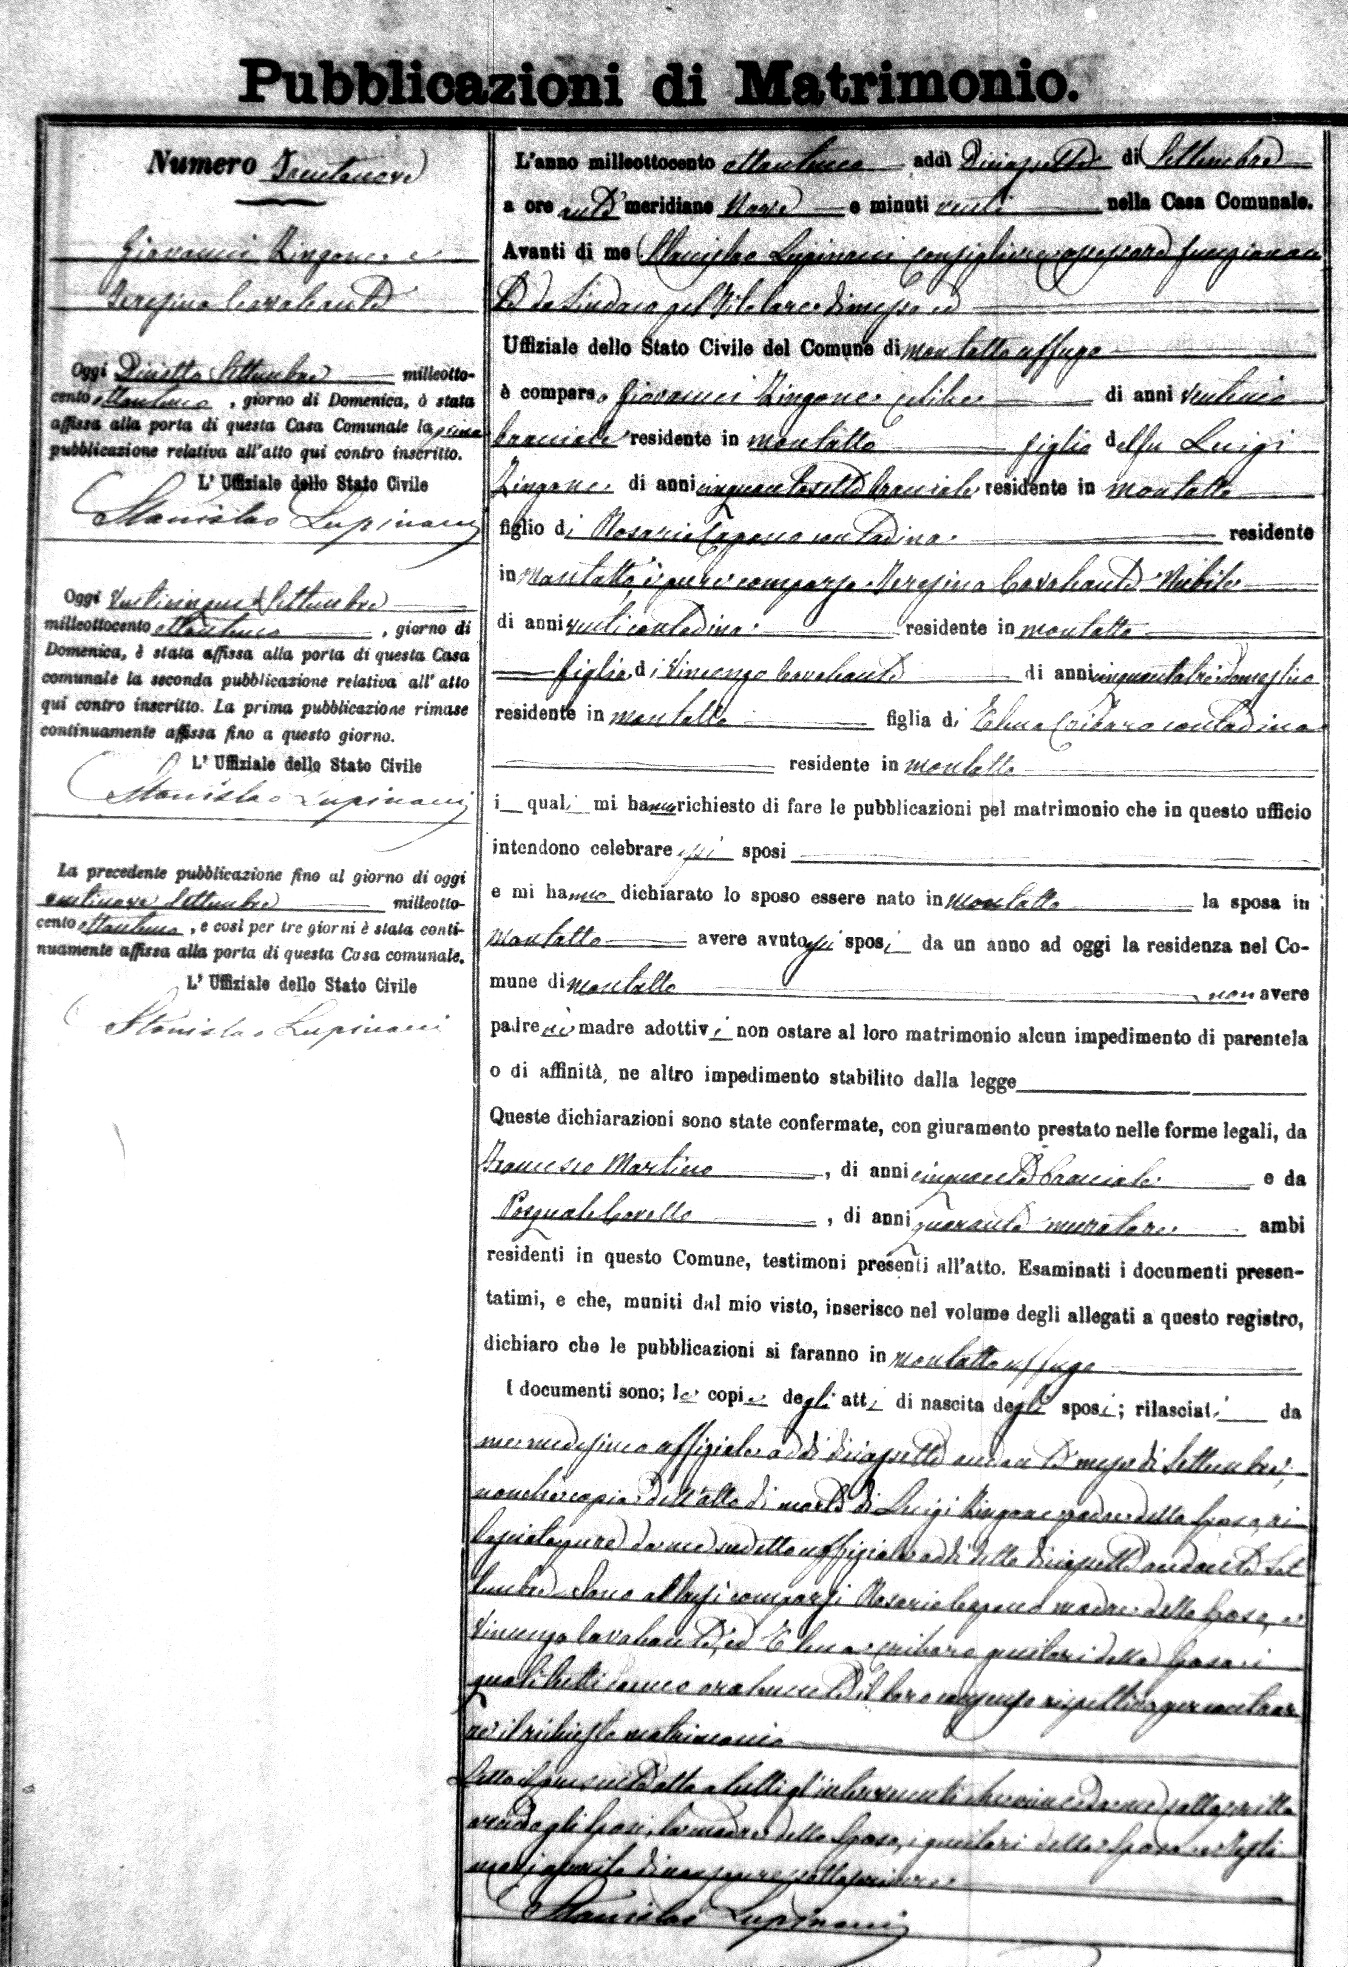 Pubblicazioni di Matrimonio.
Numero Trentanove
Giovanni Zingone e
Teresina Cavalcante
Oggi Diciotto Settembre milleotto-
cento ottantuno, giorno di Domenica, è stata
affissa alla porta di questa Casa Comunale la prima
pubblicazione relativa all'atto qui contro inscritto.
L'Uffiziale dello Stato Civile
Stanislao Lupinacci
Oggi Venticinque Settembre
milleottocento ottantuno, giorno di
Domenica, è stata affissa alla porta di questa Casa
comunale la seconda pubblicazione relativa all'atto
qui contro inscritto. La prima pubblicazione rimase
continuamente affissa fino a questo giorno.
L'Uffiziale dello Stato Civile
Stanislao Lupinacci
La precedente pubblicazione fino al giorno di oggi
ventinove Settembre milleotto-
cento ottantuno, e così per tre giorni è stata conti-
nuamente affissa alla porta di questa Casa comunale.
L'Uffiziale dello Stato Civile
Stanislao Lupinacci
L'anno milleottocento ottantuno addì Diciassette di Settembre
a ore anti meridiane Nove e minuti venti nella Casa Comunale.
Avanti di me Stanislao Lupinacci consigliere assessore funzionan
te da Sindaco pel titolare dimesso ed
Uffiziale dello Stato Civile del Comune di Montalto Uffugo
è comparso Giovanni Zingone celibe di anni
bracciale residente in Montalto figlio del fu Luigi
Zingone di anni cinquantasette bracciale residente in Montalto
figlio di Rosaria Capono contadina residente
in Montalto è pure comparsa Teresina Cavalcante Nubile
di anni venti contadina residente in Montalto
figlia di Vincenzo Cavalcante di anni cinquantatre
residente in Montalto figlia di Elena Cribaro contadina
residente in Montalto
i quali mi hanno richiesto di fare le pubblicazioni pel matrimonio che in questo ufficio
intendono celebrare essi sposi
e mi hanno dichiarato lo sposo essere nato in Montalto la sposa in
Montalto avere avuto essi sposi da un anno ad oggi la residenza nel Co-
mune di Montalto non avere
padre nè madre adottivi non ostare al loro matrimonio alcun impedimento di parentela
o di affinità, ne altro impedimento stabilito dalla legge
Queste dichiarazioni sono state confermate, con giuramento prestato nelle forme legali, da
Francesco Martino, di anni cinquanta bracciale e da
Pasquale Covello, di anni quaranta muratore ambi
residenti in questo Comune, testimoni presenti all'atto. Esaminati i documenti presen-
tatimi, e che, muniti dal mio visto, inserisco nel volume degli allegati a questo registro,
dichiaro che le pubblicazioni si faranno in Montalto Uffugo
I documenti sono; le copie degli atti di nascita degli sposi; rilasciati da
me medesimo uffiziale addi diciassette andante mese di Settembre,
nonche copia dell'atto di morte di Luigi Zingone padre dello sposo, ri
lasciata pure da me sudetto uffiziale addi detto diciassette andante Set
tembre. Sono altresì comparsi Rosaria Capono madre dello sposo, e
Vincenzo Cavalcante, ed Elena Cribaro genitori della sposa i
quali tutti hanno oralmente il loro consenso rispettivo per contrar
re il richiesto matrimonio
Letto il presente atto a tutti gl'intervenuti da me sottoscritto
gli sposi, la madre dello sposo, i genitori della sposa e testi
moni di non sapere sottoscrivere
Stanislao Lupinacci